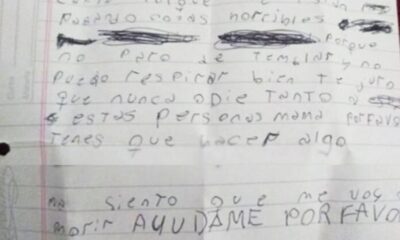 PASANDO COSAS HORRIBLES
PORQUE
NO PARO DE TEMBLAR Y NO
PUEDO RESPIRAR BIEN TE JURO
QUE NUNCA ODIE TANTO A
ESTAS PERSONAS MAMA PORFAVO
TENES QUE HACER ALGO
MA SIENTO QUE ME VOY
MORIR AYUDAME PORFAVO